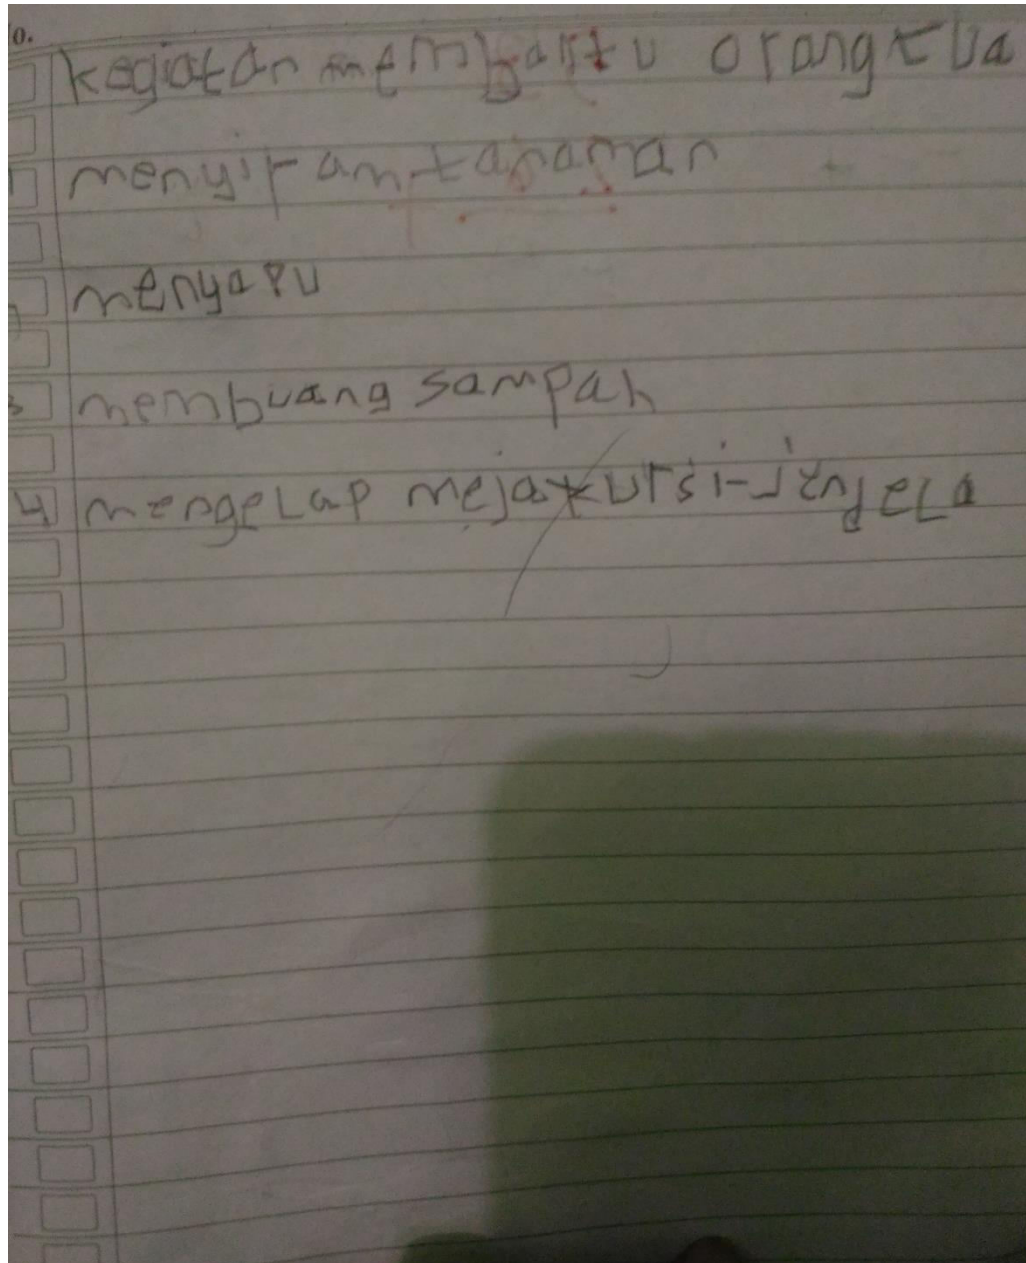 0.
kegiatan membantu orang tua
menyiram tanaman
menyapu
3 membuang sampah
4 mengelap meja kursi-